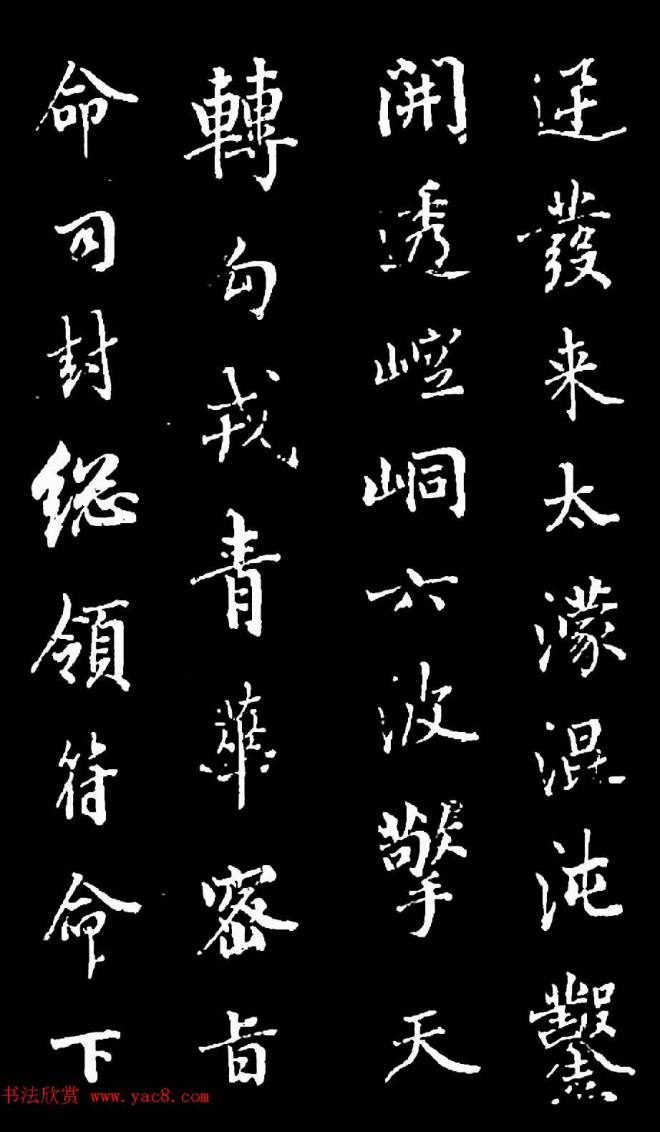 發来太濛混沌鑿
開透崆峒六波擎天
轉勾青華密旨
命司封總領符命下
书法欣赏 www.yac8.com